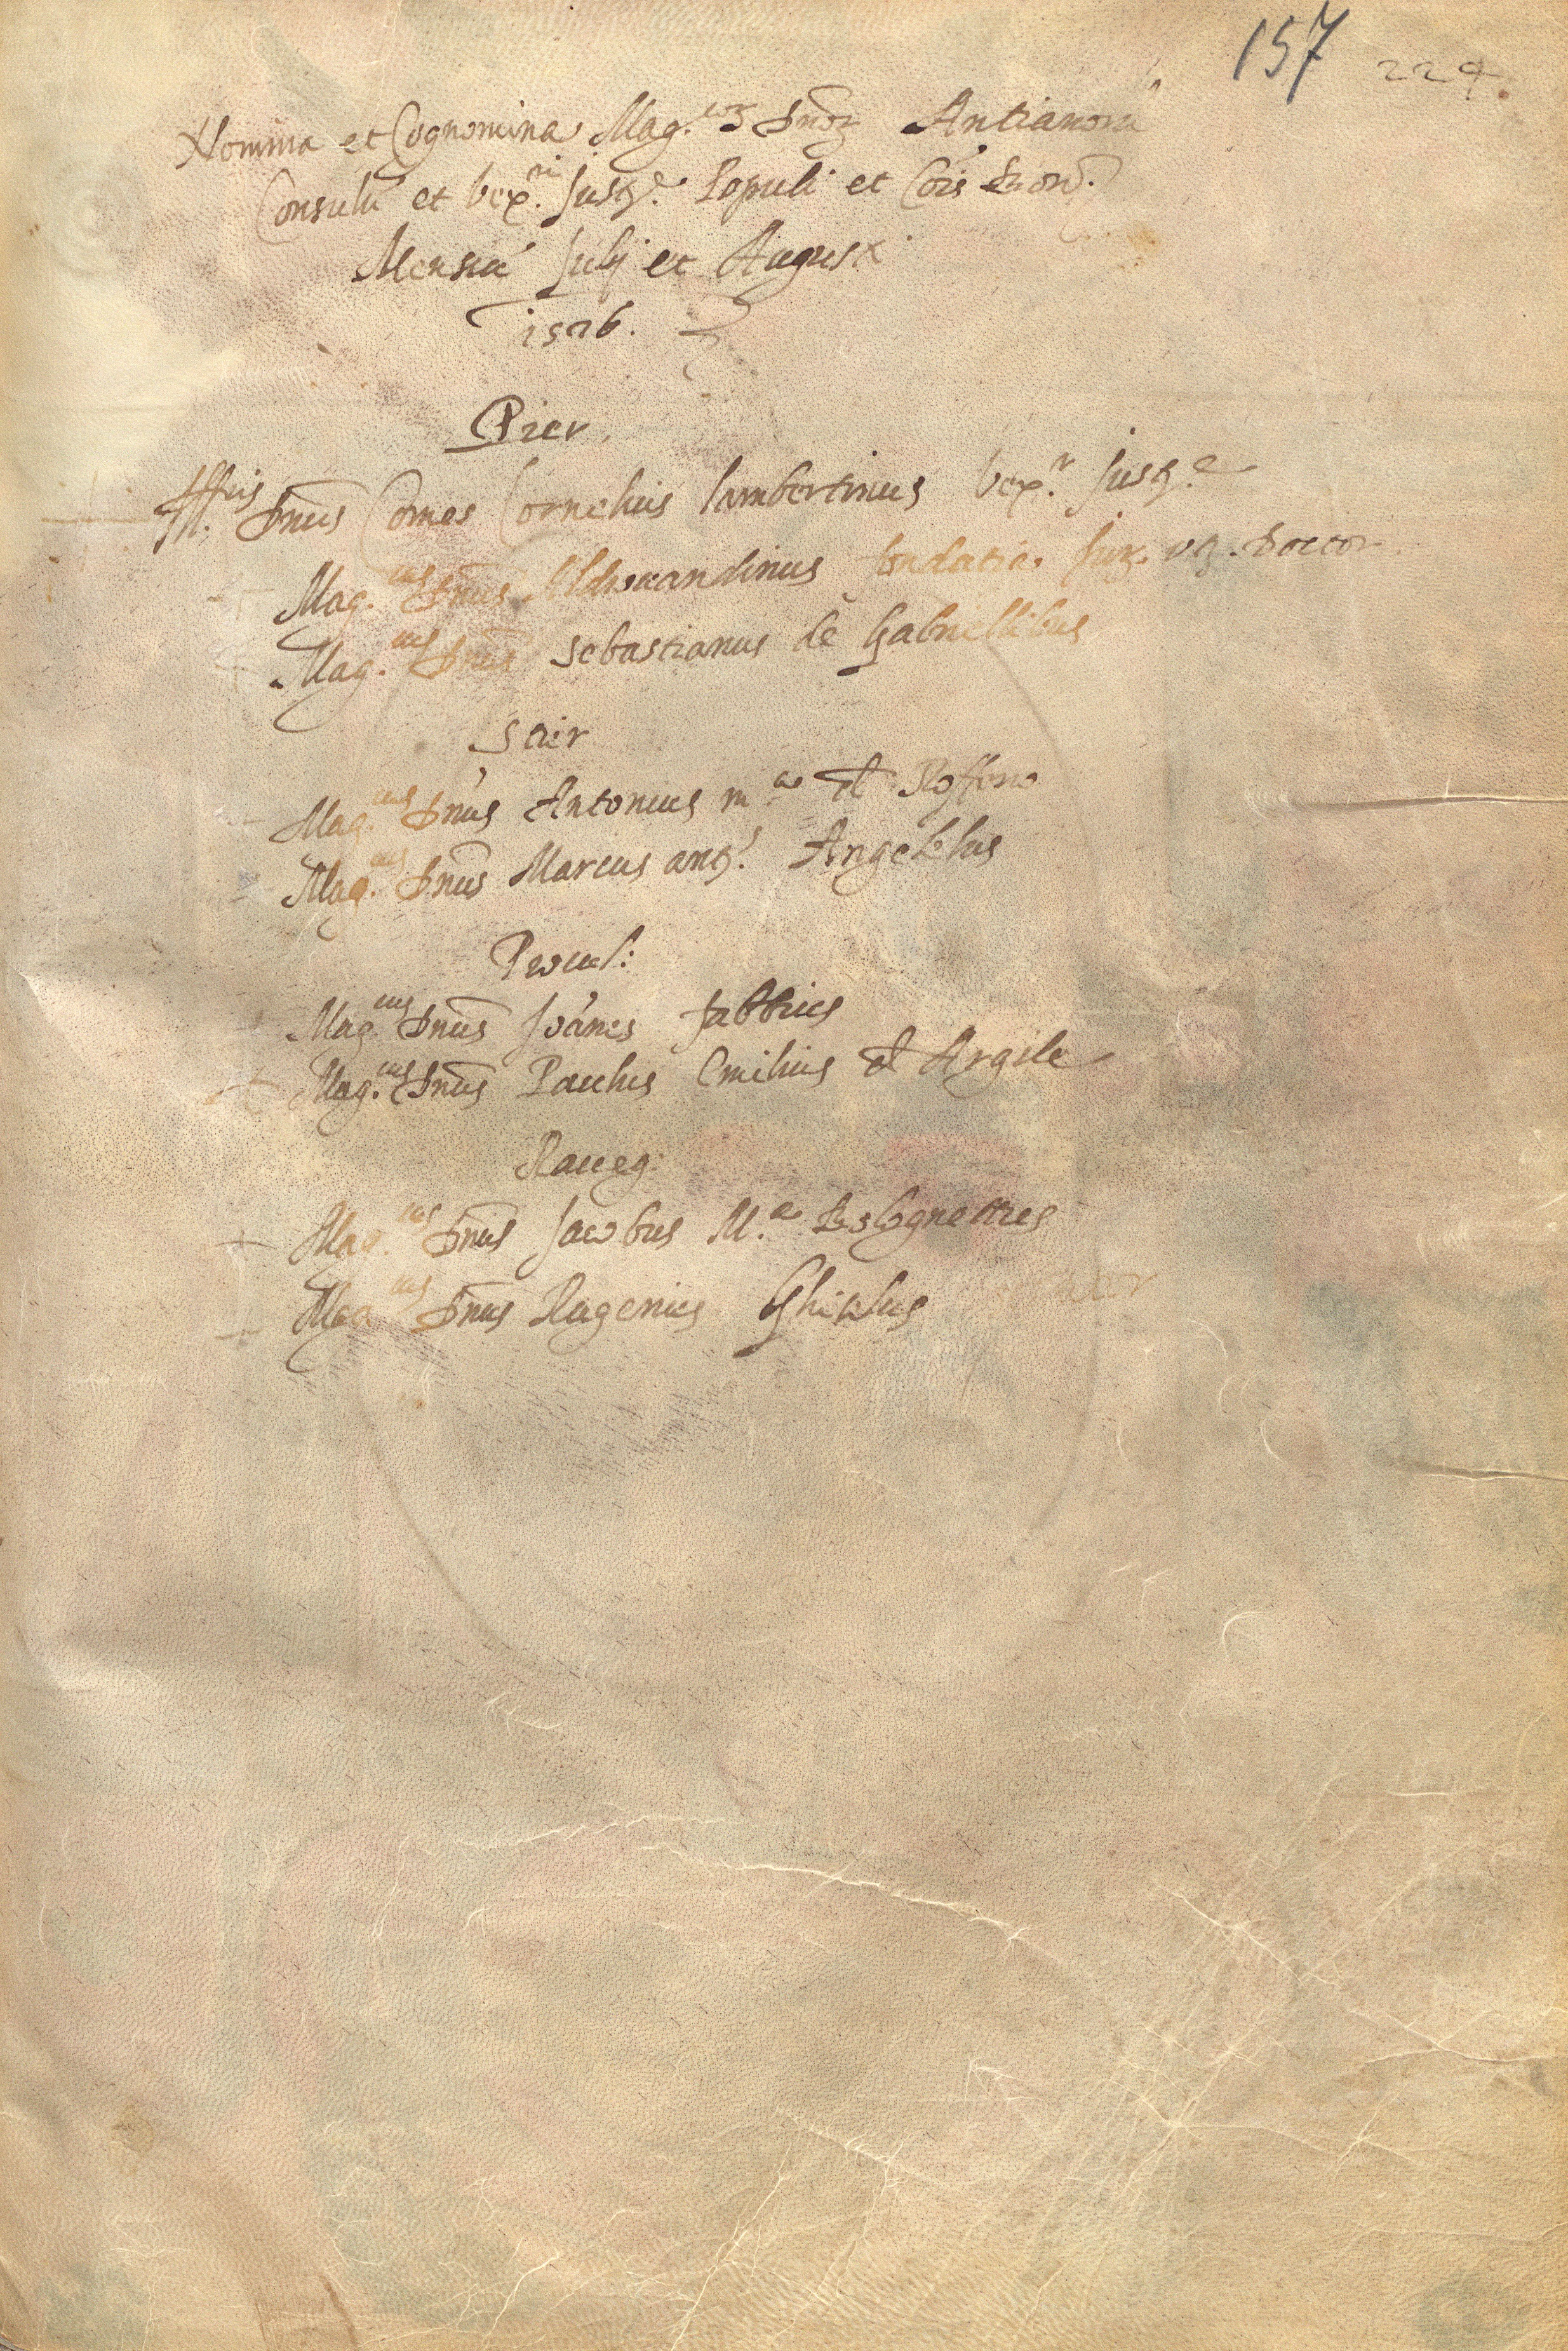 157 224.
Nomina et Cognomina Mag.coꝝ Dnoꝝ Antianorū
Consulū et Vex.ri Just.e Populi et Cõis Bnon.
Mensiū Julij et Augusti
1576.
Pier.
Ill.ris Dnus Comes Cornelius Lambertinus Vex.r Just.e
Mag.cus Dnus Aldrovandinus Fondatia Jur. ut. Doctor
Mag.cus Dnus Sebastianus de Gabriellibus
Stier
Mag.cus Dnus Antonius m.a de Roffeno
Mag.cus Dnus Marcus ant.s Angelellus
Procul:
Mag.cus Dnus Joānes fabbrius
Mag.cus Dnus Paulus Emilius de Argile
Raveg:
Mag.cus Dnus Jacobus M.a Bolognettus
Mag.cus Dnus Rugerius Ghisilus